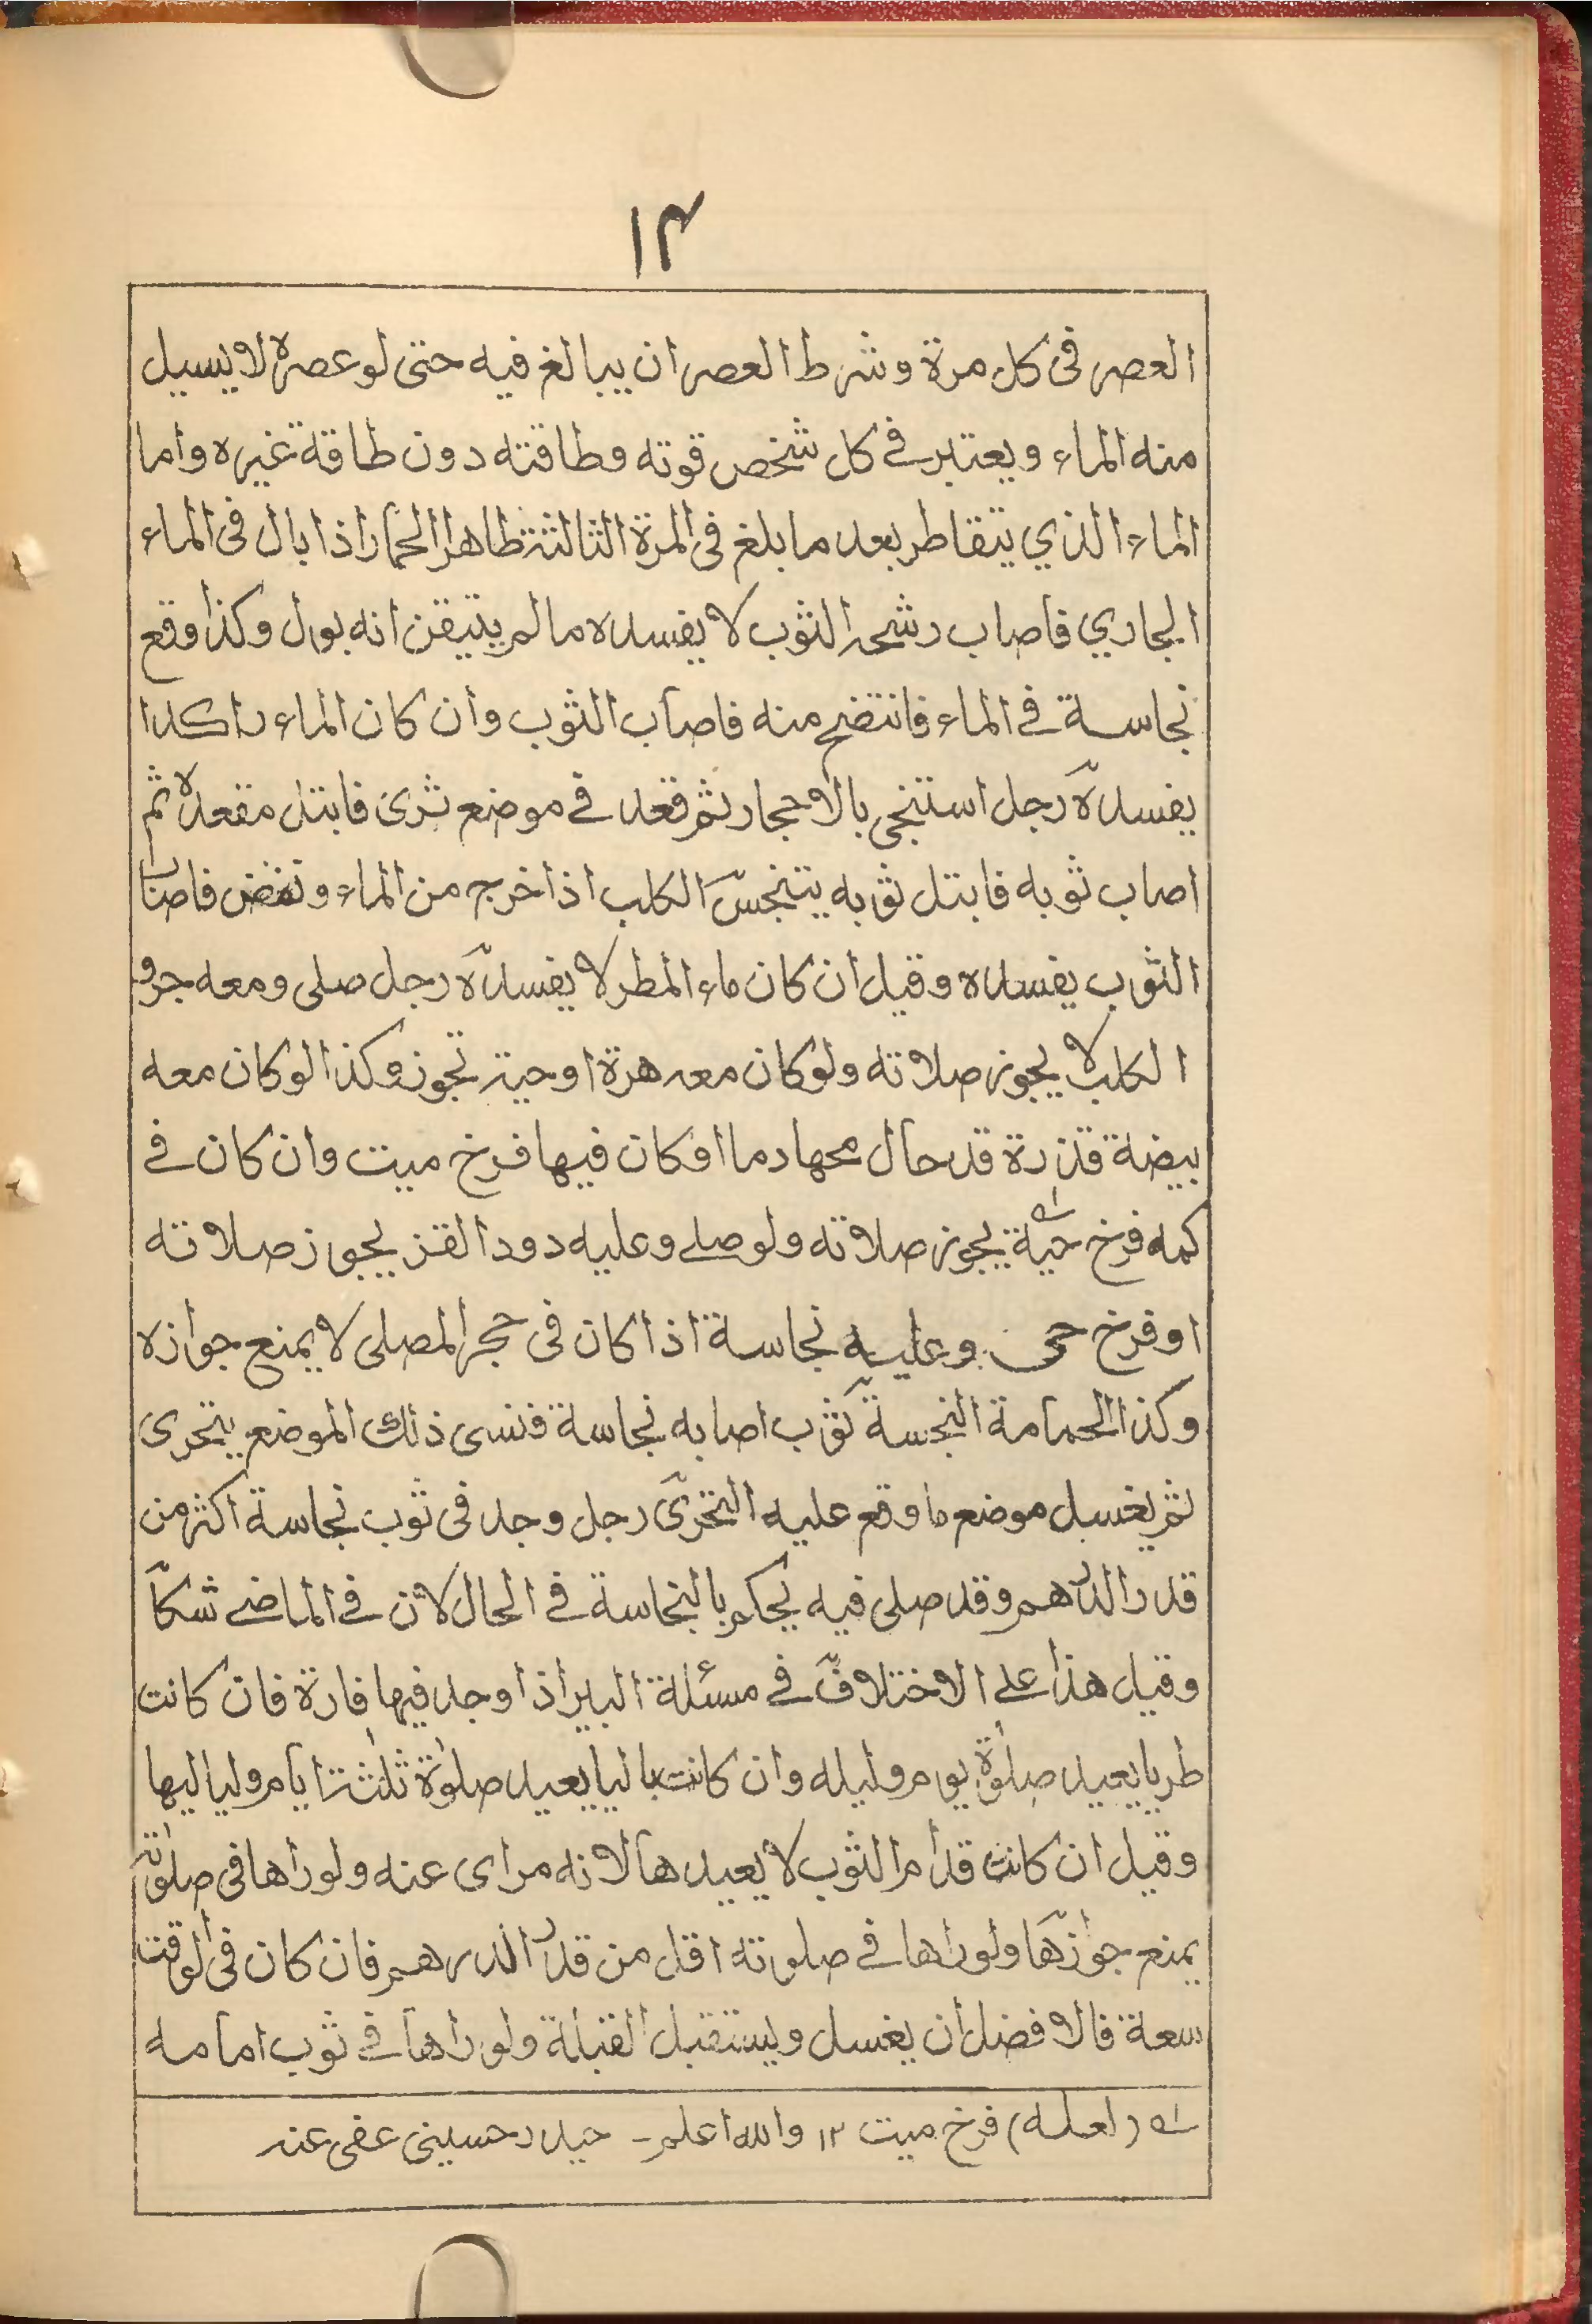 ١٤
العصر فى كل مرة وشرط العصر ان يبالغ فيه حتى لو عصره لا يسيل
منه الماء ويعتبر في كل شخص قوته وطاقته دون طاقة غيره واما
الماء الذي يتقاطر بعد ما بلغ فى المرة الثالثة طاهر الحمار اذا بال فى الماء
الجاري فاصاب رشحه الثوب لا يفسده ما لم يتيقن انه بول وكذا وقع
نجاسة في الماء فانتضح منه فاصاب الثوب وان كان الماء راكدا
يفسده رجل استنجى بالاحجار ثم قعد في موضع ثرى فابتل مقعده ثم
اصاب ثوبه فابتل ثوبه يتنجس الكلب اذا خرج من الماء ونفض فاصاب
الثوب يفسده وقيل ان كان ماء المطر لا يفسده رجل صلى ومعه جرو
الكلب لا يجوز صلاته ولو كان معه هرة او حية تجوز وكذا لو كان معه
بيضة قذرة قد حال محها دما او كان فيها فرخ ميت وان كان في
كمه فرخ حية يجوز صلاته ولو صلى وعليه دود القز يجوز صلاته
او فرخ حى وعليه نجاسة اذا كان فى حجر المصلى لا يمنع جوازه
وكذا الحمامة النجسة ثوب اصابه نجاسة فنسى ذلك الموضع يتحرى
ثم يغسل موضع ما وقع عليه التحرى رجل وجد فى ثوب نجاسة اكثر من
قدر الدرهم وقد صلى فيه يحكم بالنجاسة في الحال لان في الماضي شكا
وقيل هذا على الاختلاف في مسئلة البير اذا وجد فيها فارة فان كانت
طريا يعيد صلوة يوم وليله وان كانت باليا يعيد صلوة ثلثة ايام ولياليها
وقيل ان كانت قدام الثوب لا يعيدها لانه مراى عنه ولو راها فى صلوته
يمنع جوازها ولو راها في صلوته اقل من قدر الدرهم فان كان فى الوقت
سعة فالافضل ان يغسل ويستقبل القبلة ولو راها في ثوب امامه
له (لعله) فرخ ميت ١٢ والله اعلم - حيدر حسينى عفى عنه